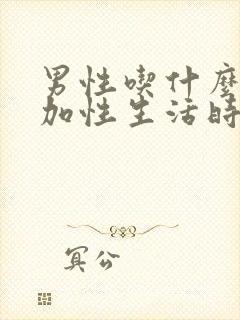 男性喫什麼
加性生活時
冥公